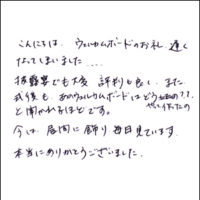 こんにちは、ウェルカムボードのお礼、遅く
なってしまいました....
披露宴でも大変 評判も良く、また
式後も、あのウェルカムボードはどう
と聞かれるほどです。
今は、居間に飾り毎日見ています。
本当にありがとうございました。